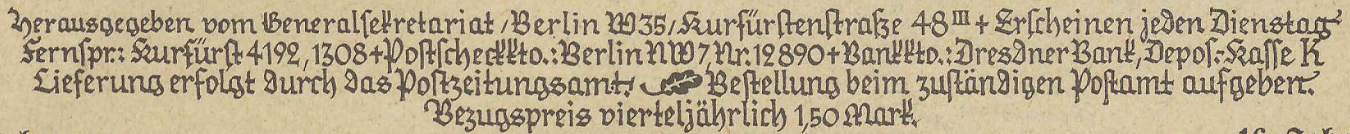 Herausgegeben vom Generalsekretariat / Berlin W35 / Kurfürstenstraße 48 III + Erscheinen jeden Dienstag
Fernspr.: Kurfürst 4192, 1308 + Postscheckkto.: Berlin NW7, Nr. 12890 + Bankkto.: Dresdner Bank, Depos.-Kasse K
Lieferung erfolgt durch das Postzeitungsamt. Bestellung beim zuständigen Postamt aufgeben.
Bezugspreis vierteljährlich 1,50 Mark.